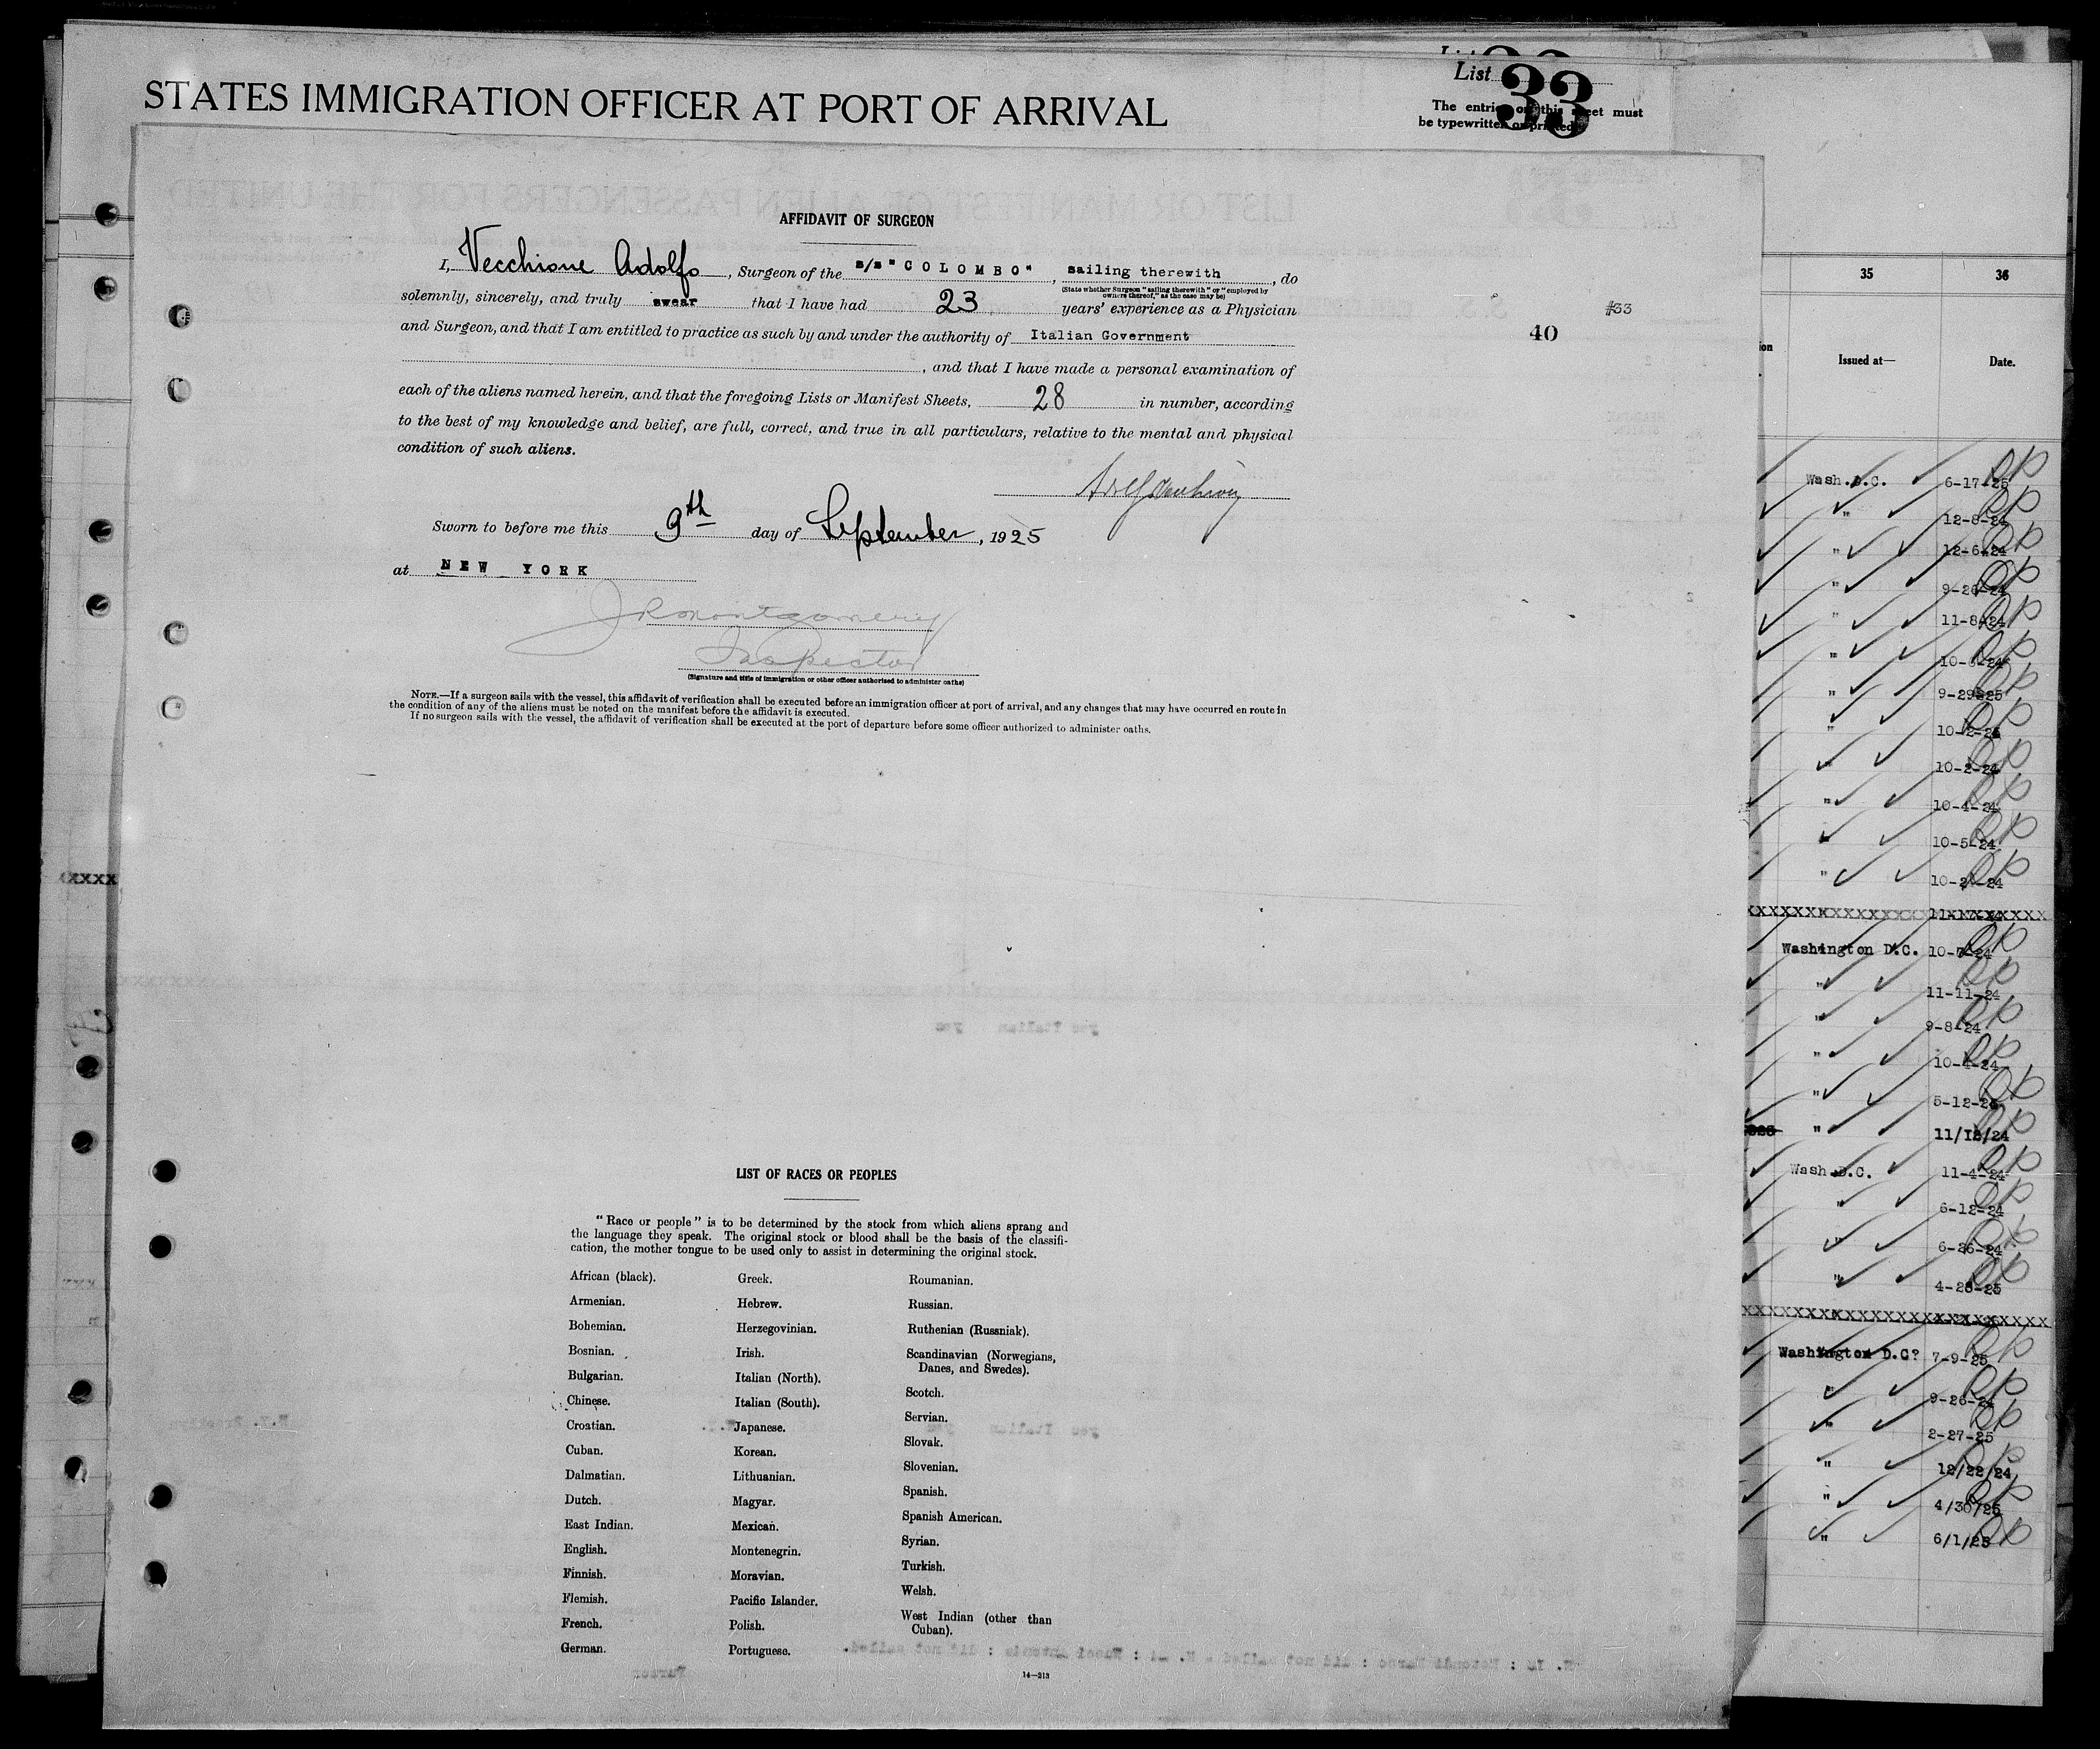 STATES IMMIGRATION OFFICER AT PORT OF ARRIVAL
List 33
The entries on this sheet must
be typewritten or printed.
AFFIDAVIT OF SURGEON
I, Vecchione Adolfo, Surgeon of the s/s "COLOMBO", sailing therewith, do
(State whether Surgeon "sailing therewith" or "employed by
owners thereof," as the case may be)
solemnly, sincerely, and truly swear that I have had 23 years' experience as a Physician
and Surgeon, and that I am entitled to practice as such by and under the authority of Italian Government
, and that I have made a personal examination of
each of the aliens named herein, and that the foregoing Lists or Manifest Sheets, 28 in number, according
to the best of my knowledge and belief, are full, correct, and true in all particulars, relative to the mental and physical
condition of such aliens.
Sworn to before me this 9th day of September, 1925
at NEW YORK
JR Montgomery
Inspector
(Signature and title of immigration or other officer authorized to administer oaths)
NOTE.—If a surgeon sails with the vessel, this affidavit of verification shall be executed before an immigration officer at port of arrival, and any changes that may have occurred en route in
the condition of any of the aliens must be noted on the manifest before the affidavit is executed.
If no surgeon sails with the vessel, the affidavit of verification shall be executed at the port of departure before some officer authorized to administer oaths.
#33
40
LIST OF RACES OR PEOPLES
"Race or people" is to be determined by the stock from which aliens sprang and
the language they speak. The original stock or blood shall be the basis of the classifi-
cation, the mother tongue to be used only to assist in determining the original stock.
African (black).
Armenian.
Bohemian.
Bosnian.
Bulgarian.
Chinese.
Croatian.
Cuban.
Dalmatian.
Dutch.
East Indian.
English.
Finnish.
Flemish.
French.
German.
Greek.
Hebrew.
Herzegovinian.
Irish.
Italian (North).
Italian (South).
Japanese.
Korean.
Lithuanian.
Magyar.
Mexican.
Montenegrin.
Moravian.
Pacific Islander.
Polish.
Portuguese.
Roumanian.
Russian.
Ruthenian (Russniak).
Scandinavian (Norwegians,
Danes, and Swedes).
Scotch.
Servian.
Slovak.
Slovenian.
Spanish.
Spanish American.
Syrian.
Turkish.
Welsh.
West Indian (other than
Cuban).
14—213
35 36
Issued at— Date.
Wash.D.C. 6-17-25
" 12-8-24
" 12-6-24
" 9-26-24
" 11-8-24
" 10-6-24
" 9-29-25
" 10-2-24
" 10-2-24
" 10-4-24
" 10-5-24
" 10-2-24
Washington D.C. 10-7-24
" 11-11-24
" 9-8-24
" 10-4-24
" 5-12-24
" 11/18/24
Wash D.C. 11-4-24
" 6-12-24
" 6-26-24
" 4-28-25
Washington D.C? 7-9-25
" 9-26-24
" 2-27-25
" 12/22/24
" 4/30/25
" 6/1/25